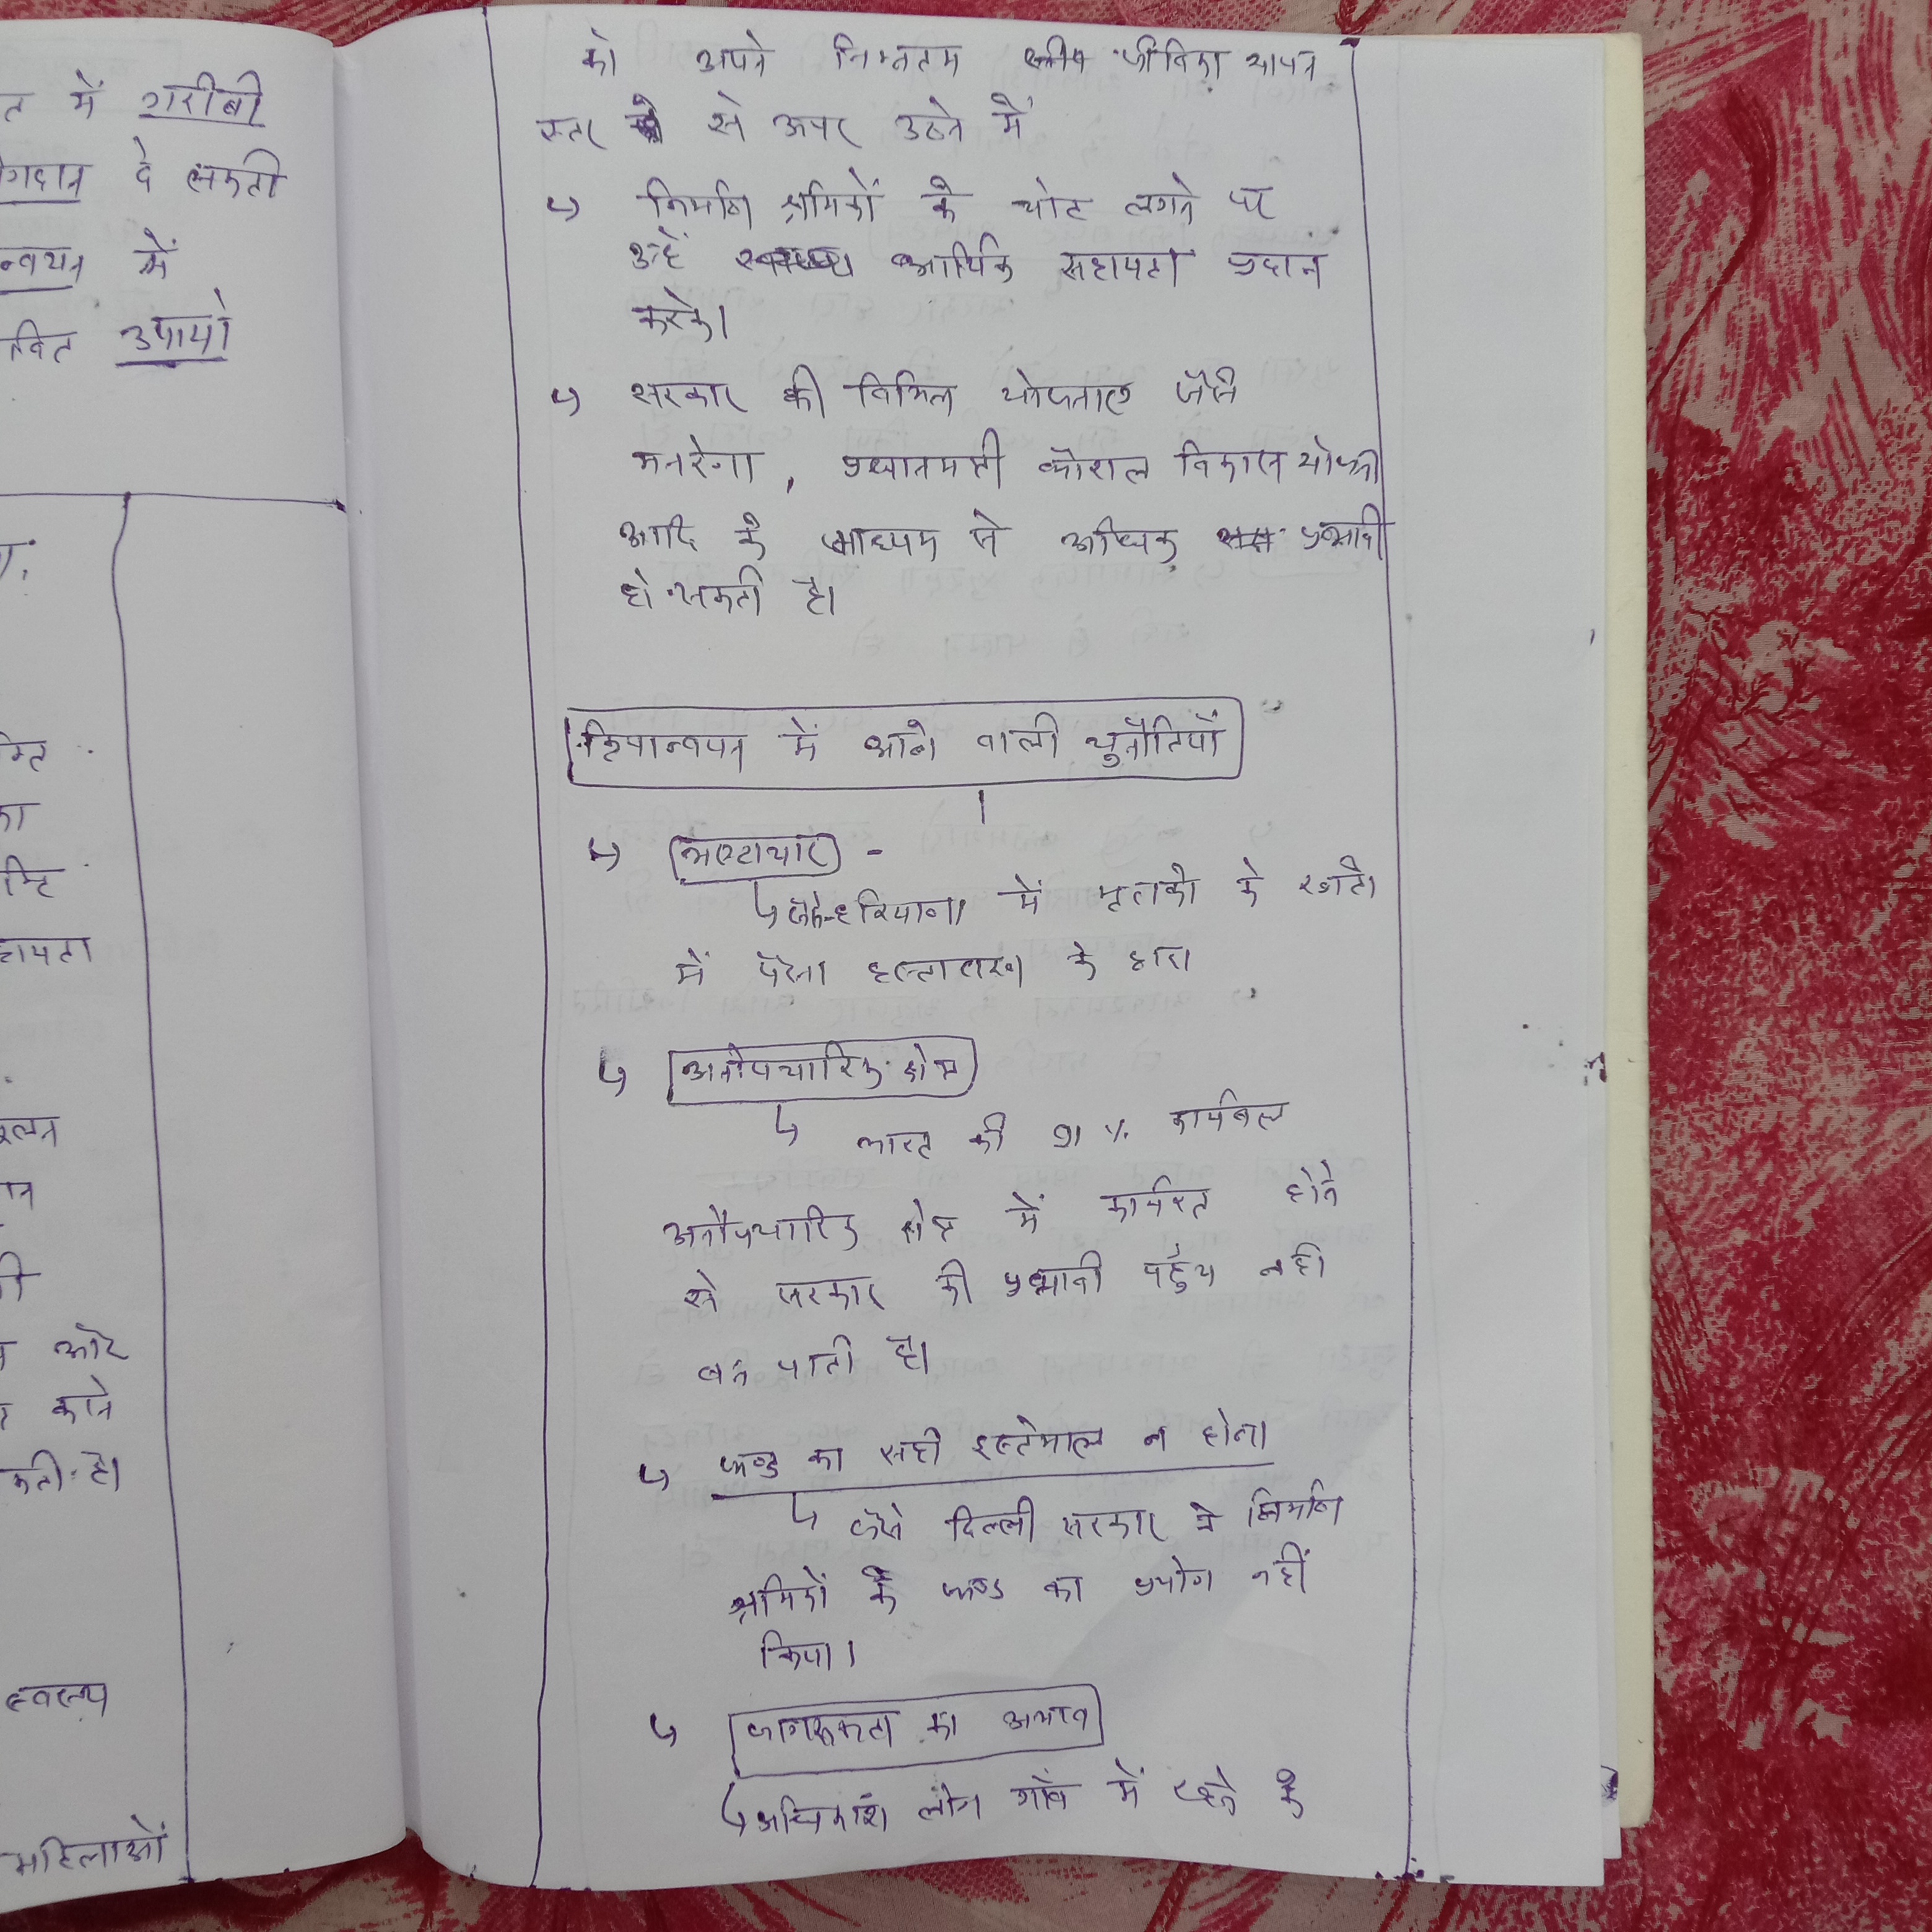 त में गरीबी
गदान दे सकती
न्वयन में
उपायो
को अपने निम्नतम जीविका यापन
स्तर से ऊपर उठने में
↳ निर्माण श्रमिकों के चोट लगने पर
उन्हें आर्थिक सहायता प्रदान
करके।
↳ सरकार की विभिन्न योजनाए जैसे
मनरेगा, प्रधानमन्त्री कौशल विकास योजना
आदि के माध्यम से अधिक प्रभावी
हो सकती है।
क्रियान्वयन में आने वाली चुनौतियाँ
↳ भ्रष्टाचार -
↳ जैसे-हरियाणा में मृतको के खाते
में पैसा हस्तातरण के द्वारा
↳ अनौपचारिक क्षेत्र
↳ भारत की 91 % कार्यबल
अनौपचारिक क्षेत्र में कार्यरत होने
से सरकार की प्रभावी पहुंच नही
बन पाती है।
↳ फण्ड का सही इस्तेमाल न होना
↳ जैसे दिल्ली सरकार ने निर्माण
श्रमिकों के फण्ड का प्रयोग नहीं
किया।
↳ जागरूकता का अभाव
↳ अधिकांश लोग गाँव में रहने के
हायता
और
करने
कती है।
स्वास्थ्य
महिलाओं